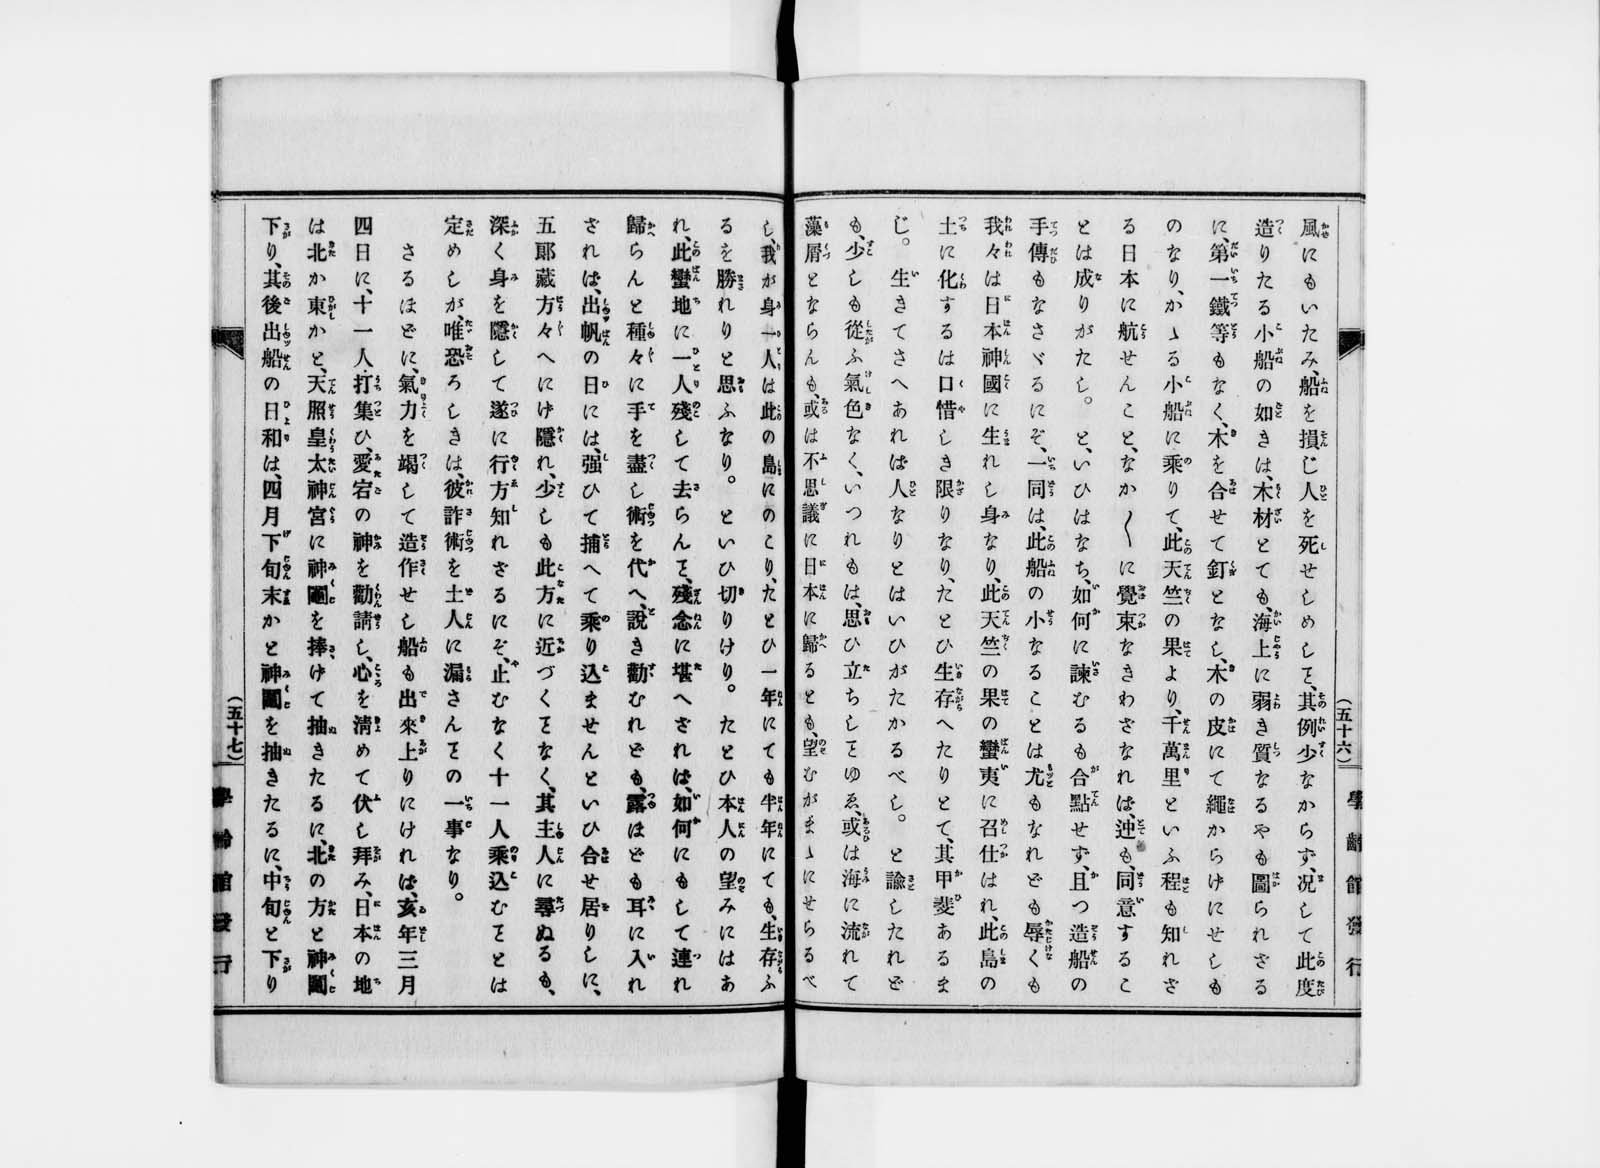 風にもいたみ、船を損じ人を死せしめしヿ、其例少なからず、况して此度
造りたる小船の如きは、木材とても、海上に弱き質なるやも圖られざる
に、第一鐵等もなく、木を合せて釘となし、木の皮にて繩からげにせしも
のなり、かゝる小船に乘りて、此天竺の果より、千萬里といふ程も知れざ
る日本に航せんこと、なか〳〵に覺束なきわざなれば、迚も、同意するこ
とは成りがたし。と、いひはなち、如何に諫むるも合點せず、且つ造船の
手傳もなさゞるにぞ、一同は、此船の小なることは尤もなれども辱くも
我々は日本神國に生れし身なり、此天竺の果の蠻夷に召仕はれ、此島の
土に化するは口惜しき限りなり、たとひ生存へたりとて、其甲斐あるま
じ。生きてさへあれば人なりとはいひがたかるべし。と諭したれど
も、少しも從ふ氣色なく、いつれもは、思ひ立ちしヿゆゑ、或は海に流れて
藻屑とならんも、或は不思議に日本に歸るとも、望むがまゝにせらるべ
（五十六）
學齡館發行
し、我が身一人は此の島にのこり、たとひ一年にても半年にても、生存ふ
るを勝れりと思ふなり。といひ切りけり。たとひ本人の望みにはあ
れ、此蠻地に一人殘して去らんヿ、殘念に堪へざれは、如何にもして連れ
歸らんと種々に手を盡し術を代へ、說き勸むれども、露ほども耳に入れ
されば、出帆の日には、强ひて捕へて乘り込ませんといひ合せ居りしに、
五郎藏方々へにげ隱れ、少しも此方に近づくヿなく、其主人に尋ぬるも、
深く身を隱して遂に行方知れざるにぞ、止むなく十一人乘込むヿとは
定めしが、唯恐ろしきは、彼詐術を土人に漏さんヿの一事なり。
さるほどに、氣力を竭して造作せし船も出來上りにければ、亥年三月
四日に、十一人打集ひ、愛宕の神を勸請し、心を淸めて伏し拜み、日本の地
は北か東かと、天照皇太神宮に神圖を捧けて抽きたるに、北の方と神圖
下り、其後出船の日和は、四月下旬末かと神圖を抽きたるに、中旬と下り
（五十七）
學齡館發行